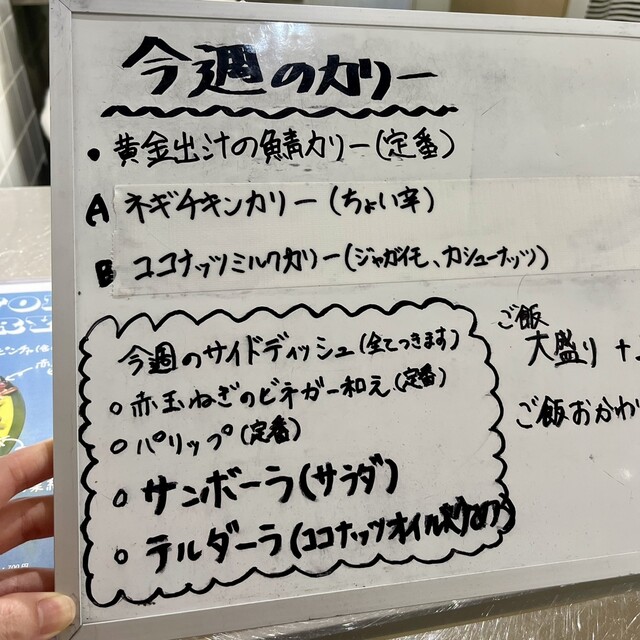 今週のカリー
• 黄金出汁の鯖カリー(定番)
A ネギチキンカリー(ちょい辛)
B ココナッツミルクカリー(ジャガイモ、カシューナッツ)
今週のサイドディッシュ(全てつきます)
○ 赤玉ねぎのビネガー和え(定番)
○ パリップ(定番)
○ サンボーラ(サラダ)
○ テルダーラ(ココナッツオイル炒め)
ご飯
大盛り +
ご飯おかわり